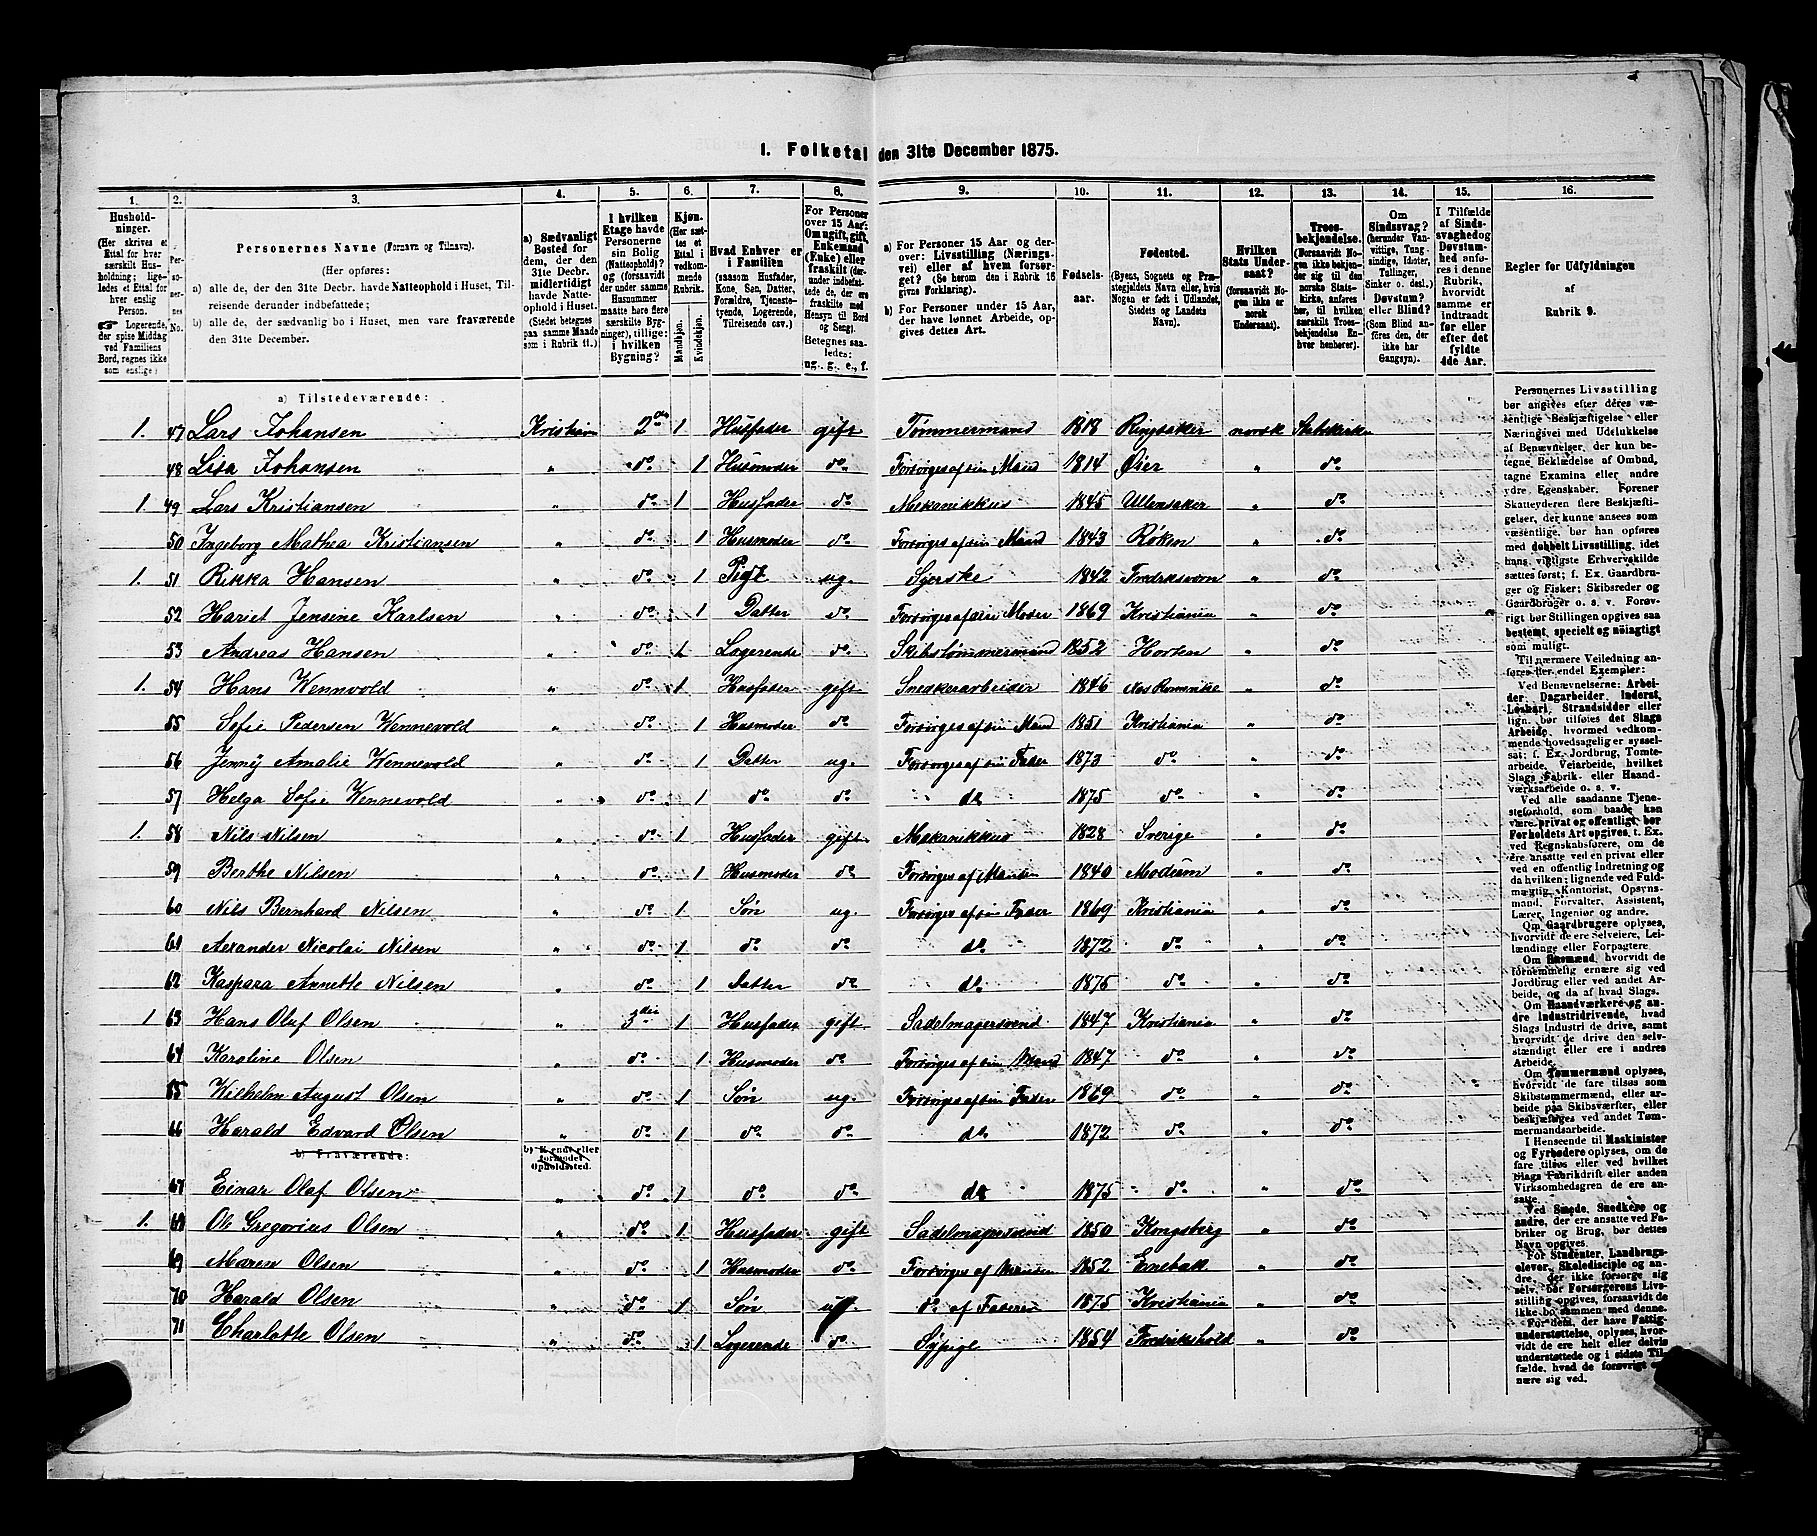 1. Folketal den 31te December 1875.
1. 2. 3. 4. 5. 6. 7. 8. 9. 10. 11. 12. 13. 14. 15. 16.
Husholdninger. (Her skrives et Ettal for hver særskilt Husholdning; ligeledes et Ettal for hver enslig Person. Logerende, der spise Middag ved Familiens Bord, regnes ikke som enslige.)
Personernes No.
Personernes Navne (Fornavn og Tilnavn).
(Her opføres:
a) alle de, der den 31te Decbr. havde Natteophold i Huset, Tilreisende derunder indbefattede;
b) alle de, der sædvanlig bo i Huset, men vare fraværende den 31te December.
a) Sædvanligt Bosted for dem, der den 31te Decbr. midlertidigt havde Natteophold i Huset. (Stedet betegnes paa samme Maade som i Rubrik 11.)
I hvilken Etage havde Personerne sin Bolig (Natteophold)? (forsaavidt der under samme Husnummer maatte høre flere særskilte Bygninger), tillige: i hvilken Bygning?
Kjøn. (Her sættes et Ettal i vedkommende Rubrik.
Mandkjøn. Kvindekjøn.
Hvad Enhver er i Familien (saasom Husfader, Kone, Søn, Datter, Forældre, Tjenestetyende, Logerende, Tilreisende osv.)
For Personer over 15 Aar: Om ugift, gift, Enkemand (Enke) eller fraskilt (derunder indbefattede de, der ere fraskilte med Hensyn til Bord og Seng). Betegnes saaledes: ug., g., e., f.
a) For Personer 15 Aar og derover: Livsstilling (Næringsvei) eller af hvem forsørget? (Se herom den i Rubrik 16 givne Forklaring).
b) For Personer under 15 Aar, der have lønnet Arbeide, opgives dettes Art.
Fødselsaar.
Fødested. (Byens, Sognets og Præstegjeldets Navn eller, hvis Nogen er født i Udlandet, Stedets og Landets Navn).
Hvilken Stats Undersaat? (forsaavidt Nogen ikke er norsk Undersaat).
Troesbekjendelse. (Forsaavidt Nogen ikke bekjender sig til den norske Statskirke, anføres her, til hvilken særskilt Troesbekjendelse Enhver henhører).
Om Sindssvag? (herunder Vanvittige, Tungsindige, Idioter, Tullinger, Sinker o. desl.) Døvstum? eller Blind? (Som Blind anføres den, der ikke har Gangsyn).
I Tilfælde af Sindssvaghed og Døvstumhed anføres i denne Rubrik, hvorvidt samme er indtraadt før eller efter det fyldte 4de Aar.
Regler for Udfyldningen af Rubrik 9.
a) Tilstedeværende:
1. 47 Lars Johansen Kristiania 2den 1 Husfader gift Tømmermand 1818 Ringsaker norsk Statskirken
48 Lisa Johansen " do 1 Husmoder do Forsørges af sin Mand 1814 Øier " do
1 49 Lars Kristiansen " do 1 Husfader do Mekanikkus 1845 Ullensaker " do
50 Ingeborg Mathea Kristiansen " do 1 Husmoder do Forsørges af sin Mand 1843 Røken " do
1. 51 Rikka Hansen " do 1 Pige ug. Syerske 1842 Fredriksværn " do
52 Hariet Jensine Karlsen " do 1 Datter do Forsørges af sin Moder 1869 Kristiania " do
53 Andreas Hansen " do 1 Logerende do Skibstømmermand 1852 Horten " do
1. 54 Hans Wennvold " do 1 Husfader gift Snedkerarbeider 1846 Nes Romerike " do
55 Sofie Pedersen Wennevold " do 1 Husmoder do Forsørges af sin Mand 1851 Kristiania " do
56 Jenny Amalie Wennevold " do 1 Datter ug. Forsørges af sin Fader 1873 do " do
57 Helga Sofie Wennevold " do 1 do do do 1875 do " do
1. 58 Nils Nilsen " do 1 Husfader gift Mekanikkus 1828 Sverige " do
59 Berthe Nilsen " do 1 Husmoder do Forsørges af Manden 1840 Modum " do
60 Nils Bernhard Nilsen " do 1 Søn ug. Forsørges af sin Fader 1869 Kristiania " do
61 Aexander Nicolai Nilsen " do 1 do do do 1872 do " do
62 Kaspara Annette Nilsen " do 1 Datter do do 1875 do " do
1 63 Hans Oluf Olsen " 3die 1 Husfader gift Sadelmagersvend 1847 Kristiania " do
64 Karoline Olsen " do 1 Husmoder do Forsørges af sin Mand 1847 do " do
65 Wilhelm August Olsen " do 1 Søn ug. Forsørges af sin Fader 1869 do " do
66 Harald Edvard Olsen " do 1 do do do 1872 do " do
b) Fraværende: b) Kjendt eller formodet Opholdssted.
67 Einar Olaf Olsen " do 1 do do do 1875 do " do
1. 68 Ole Gregorius Olsen " do 1 Husfader gift Sadelmagersvend 1850 Kongsberg " do
69 Maren Olsen " do 1 Husmoder do Forsørges af Manden 1852 Enebak " do
70 Harald Olsen " do 1 Søn ug. do af Faderen 1875 Kristiania " do
71 Charlotte Olsen " do 1 Logerende do Sypige 1854 Fredrikshold " do
Personernes Livsstilling
bør angives efter deres væsentlige
Beskjæftigelse eller
Næringsvei med Udelukkelse
af Benævnelser, der kun betegne
Beklædelse af Ombud,
tagne Examina eller andre
ydre Egenskaber. Forener
Skatteyderen flere Beskjæftigelser,
der kunne ansees som
væsentlige, bør han opføres
med dobbelt Livsstilling, idet
hans vigtigste Erhvervskilde
sættes først; f. Ex. Gaardbruger
og Fisker; Skibsreder og
Gaardbruger o. s. v. Forøvrigt
bør Stillingen opgives saa
bestemt, specielt og nøiagtigt
som muligt.
Til nærmere Veiledning anføres
her endel Exempler:
Ved Benævnelserne: Arbeider,
Dagarbeider, Inderst,
Løskarl, Strandsidder eller
lign. bør tilføies det Slags
Arbeide, hvormed vedkommende
hovedsagelig er sysselsat;
f. Ex. Jordbrug, Tomtearbeide,
Veiarbeide, hvilket
Slags Fabrik- eller Haandværksarbeide
o. s. v.
Ved alle saadanne Tjenesteforhold,
som baade kan
være privat og offentligt, bør
Forholdets Art opgives, t. Ex.
ved Regnskabsførere, om de
ere ansatte ved en privat eller
ved en offentlig Indretning og
da hvilken; lignende ved Fuldmægtig,
Kontorist, Opsynsmand,
Forvalter, Assistent,
Lærer, Ingeniør og andre.
Om Gaardbrugere oplyses,
hvorvidt de ere Selveiere, Leilændinge
eller Forpagtere.
Om Husmænd, hvorvidt de
fornemmelig ernære sig ved
Jordbrug eller ved andet Arbeide,
og da af hvad Slags.
Om Haandværkere og andre
Industridrivende, hvad
Slags Industri de drive, samt
hvorvidt de drive den selvstændigt
eller ere i andres
Arbeide.
Om Tømmermænd oplyses,
hvorvidt de fare tilsøs som
Skibstømmermænd, eller arbeide
paa Skibsværfter, eller
beskjæftiges ved andet Tømmermandsarbeide.
I Henseende til Maskinister
og Fyrbødere oplyses, om de
fare tilsøs eller ved hvilket
Slags Fabrikdrift eller anden
Virksomhedsgren de ere ansatte.
Ved Smede, Snedkere og
andre, der ere ansatte ved Fabriker
og Brug, bør dettes
Navn opgives.
For Studenter, Landbrugselever,
Skoledisciple og andre,
der ikke forsørge sig
selv, bør Forsørgerens Livsstilling
opgives, forsaavidt de
ikke bo sammen med denne.
For dem, der have Fattigunderstøttelse,
oplyses, hvorvidt
de ere helt eller delvis
understøttede og i sidste Tilfælde,
hvad de forøvrigt ernære
sig ved.